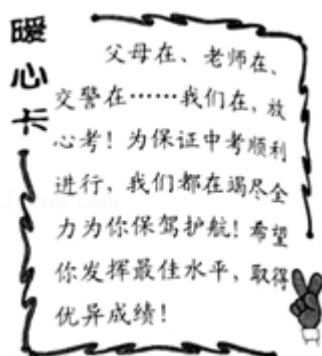 暖心卡
父母在、老师在、
交警在……我们在，放
心考！为保证中考顺利
进行，我们都在竭尽全
力为你保驾护航！希望
你发挥最佳水平，取得
优异成绩！